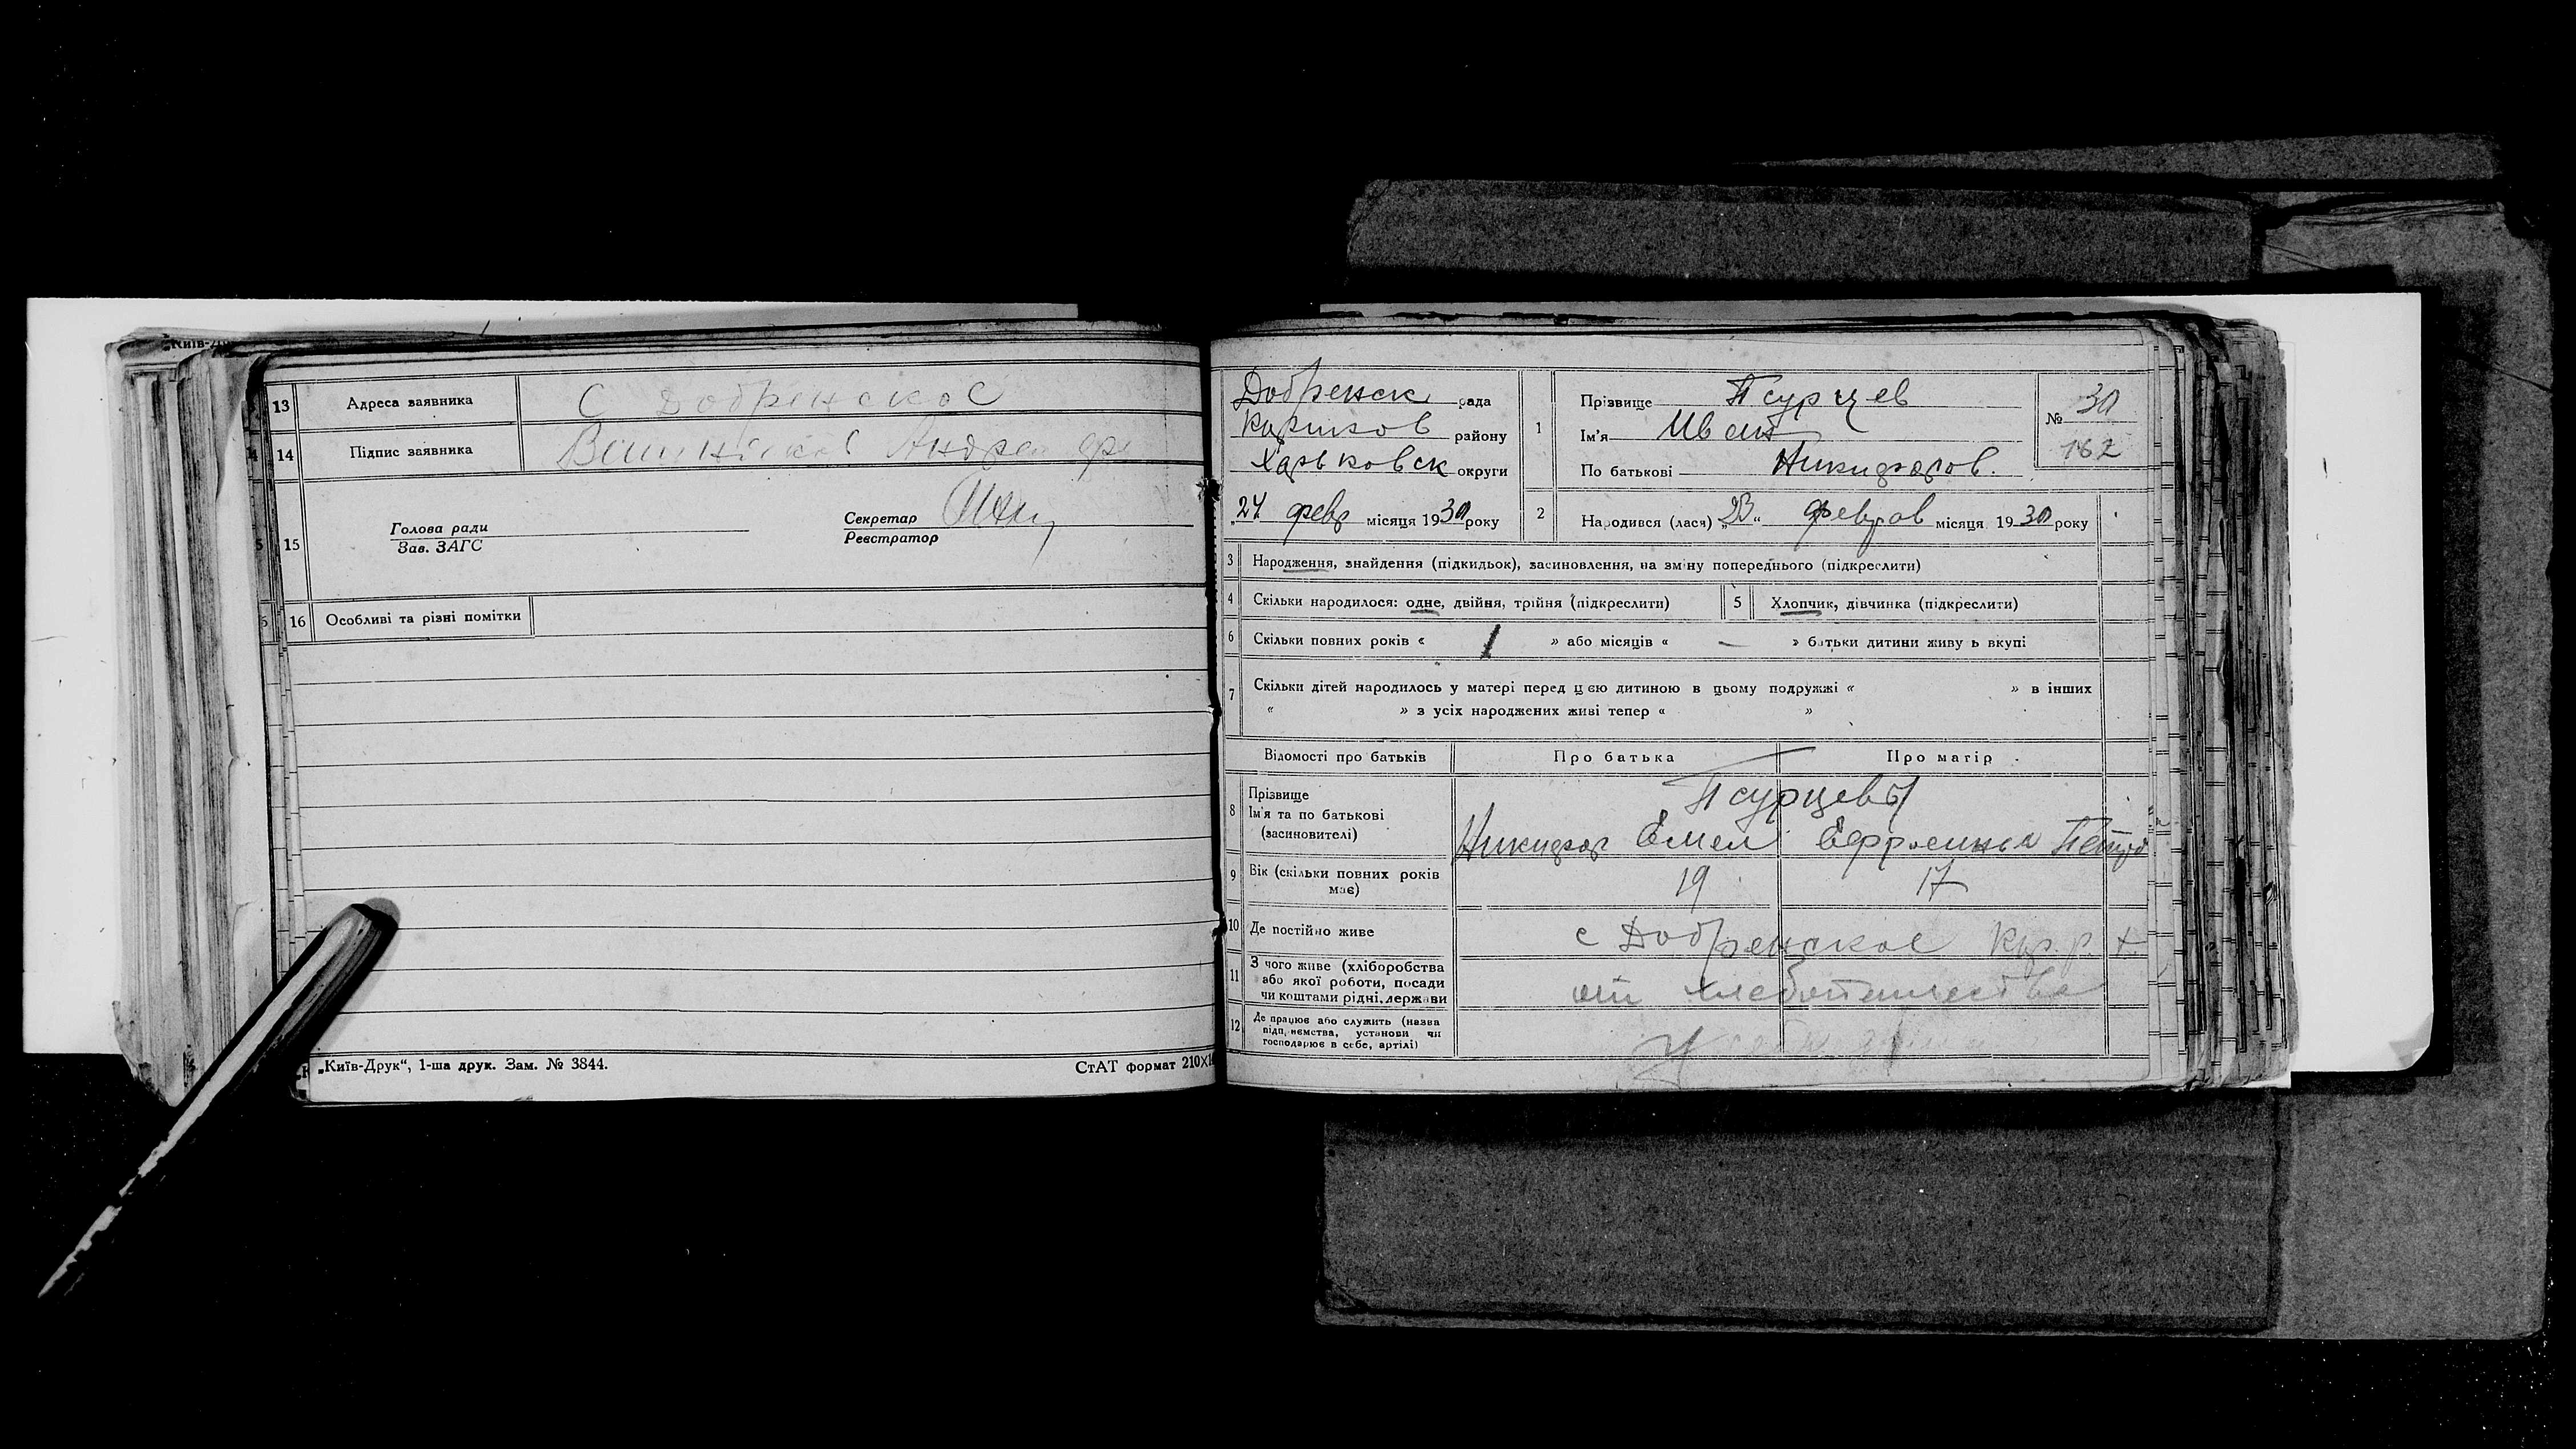 „Київ-Др
13 Адреса заявника с Добренское
14 Підпис заявника Андрей
15 Голова ради
Зав. ЗАГС
Секретар
Реєстратор
16 Особливі та різні помітки
„Київ-Друк“, 1-ша друк. Зам. № 3844.
СтАТ формат 210×1
Добренск рада
району
Харьковск округи
„27 февр місяця 1930 року
1 Прізвище Псурцев
Ім'я Иван
По батькові Никифоров.
№ 30
162
2 Народився (лася) „23“ февраль місяця 1930 року
3 Народження, знайдення (підкидьок), засиновлення, на зміну попереднього (підкреслити)
4 Скільки народилося: одне, двійня, трійня (підкреслити)
5 Хлопчик, дівчинка (підкреслити)
6 Скільки повних років « 1 » або місяців « — » батьки дитини живуть вкупі
7 Скільки дітей народилось у матері перед цією дитиною в цьому подружжі « » в інших
« » з усіх народжених живі тепер « »
Відомості про батьків Про батька Про матір
8 Прізвище
Ім'я та по батькові
(засиновителі)
Псурцевы
Никифор Емел Ефросинья Петро
9 Вік (скільки повних років має) 19 17
10 Де постійно живе с Добренское
11 З чого живе (хліборобства
або якої роботи, посади
чи коштами рідні, держави
от хлебопашества
12 Де працює або служить (назва
підприємства, установи чи
господарює в себе, артілі)